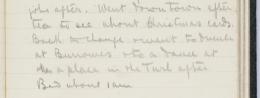 jobs after. Went down town after
tea to see about Christmas cards.
Back to change & went to dinner
at Burrowes & to a dance at
a place in the Turk after
Bed about 1 am